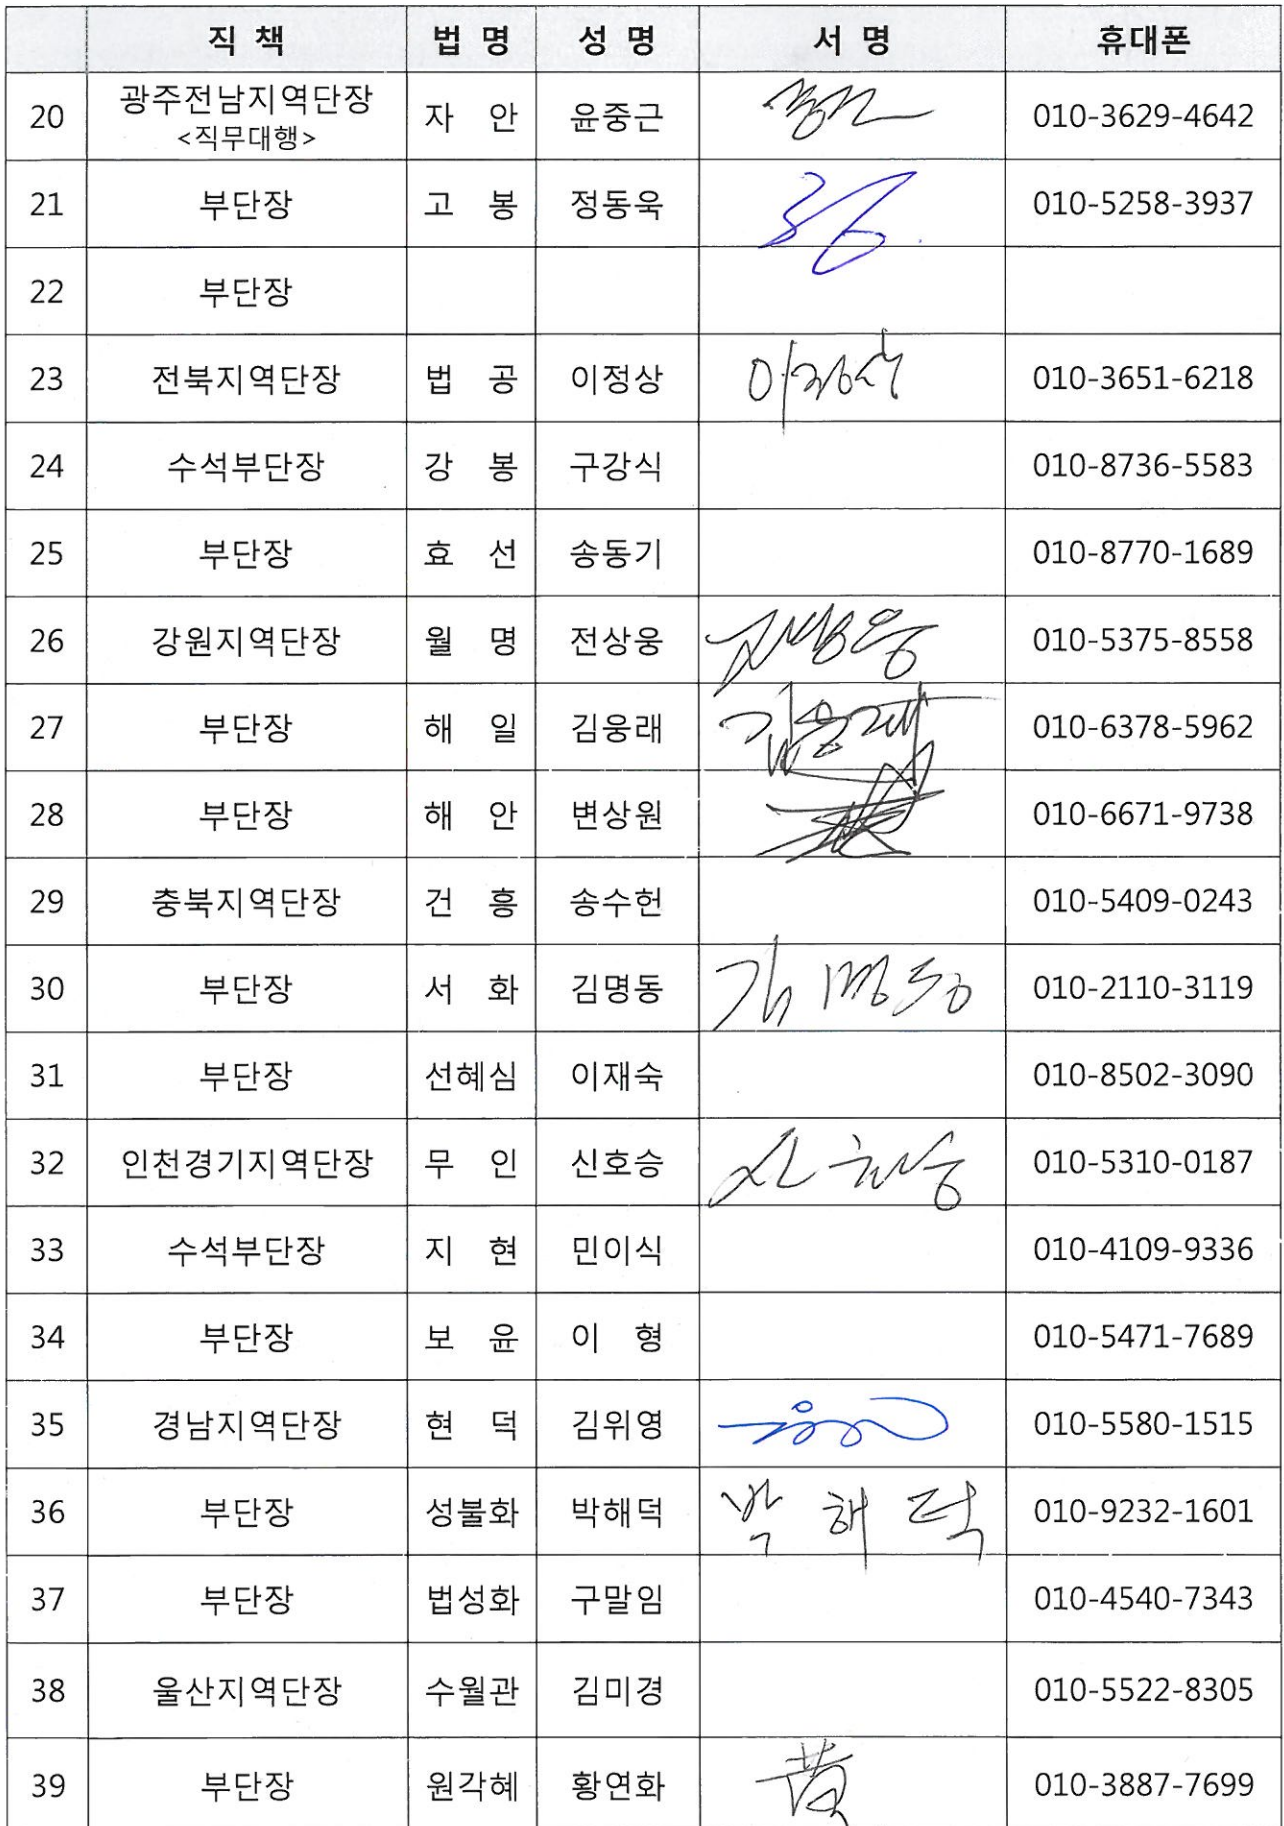 직 책 법 명 성 명 서 명 휴대폰
20 광주전남지역단장 자 안 윤중근 010-3629-4642
<직무대행>
21 부단장 고 봉 정동욱 010-5258-3937
22 부단장
23 전북지역단장 법 공 이정상 이정상 010-3651-6218
24 수석부단장 강 봉 구강식 010-8736-5583
25 부단장 효 선 송동기 010-8770-1689
26 강원지역단장 월 명 전상웅 전상웅 010-5375-8558
27 부단장 해 일 김웅래 김웅래 010-6378-5962
28 부단장 해 안 변상원 010-6671-9738
29 충북지역단장 건 흥 송수헌 010-5409-0243
30 부단장 서 화 김명동 김명동 010-2110-3119
31 부단장 선혜심 이재숙 010-8502-3090
32 인천경기지역단장 무 인 신호승 신호승 010-5310-0187
33 수석부단장 지 현 민이식 010-4109-9336
34 부단장 보 윤 이 형 010-5471-7689
35 경남지역단장 현 덕 김위영 010-5580-1515
36 부단장 성불화 박해덕 박해덕 010-9232-1601
37 부단장 법성화 구말임 010-4540-7343
38 울산지역단장 수월관 김미경 010-5522-8305
39 부단장 원각혜 황연화 黃 010-3887-7699